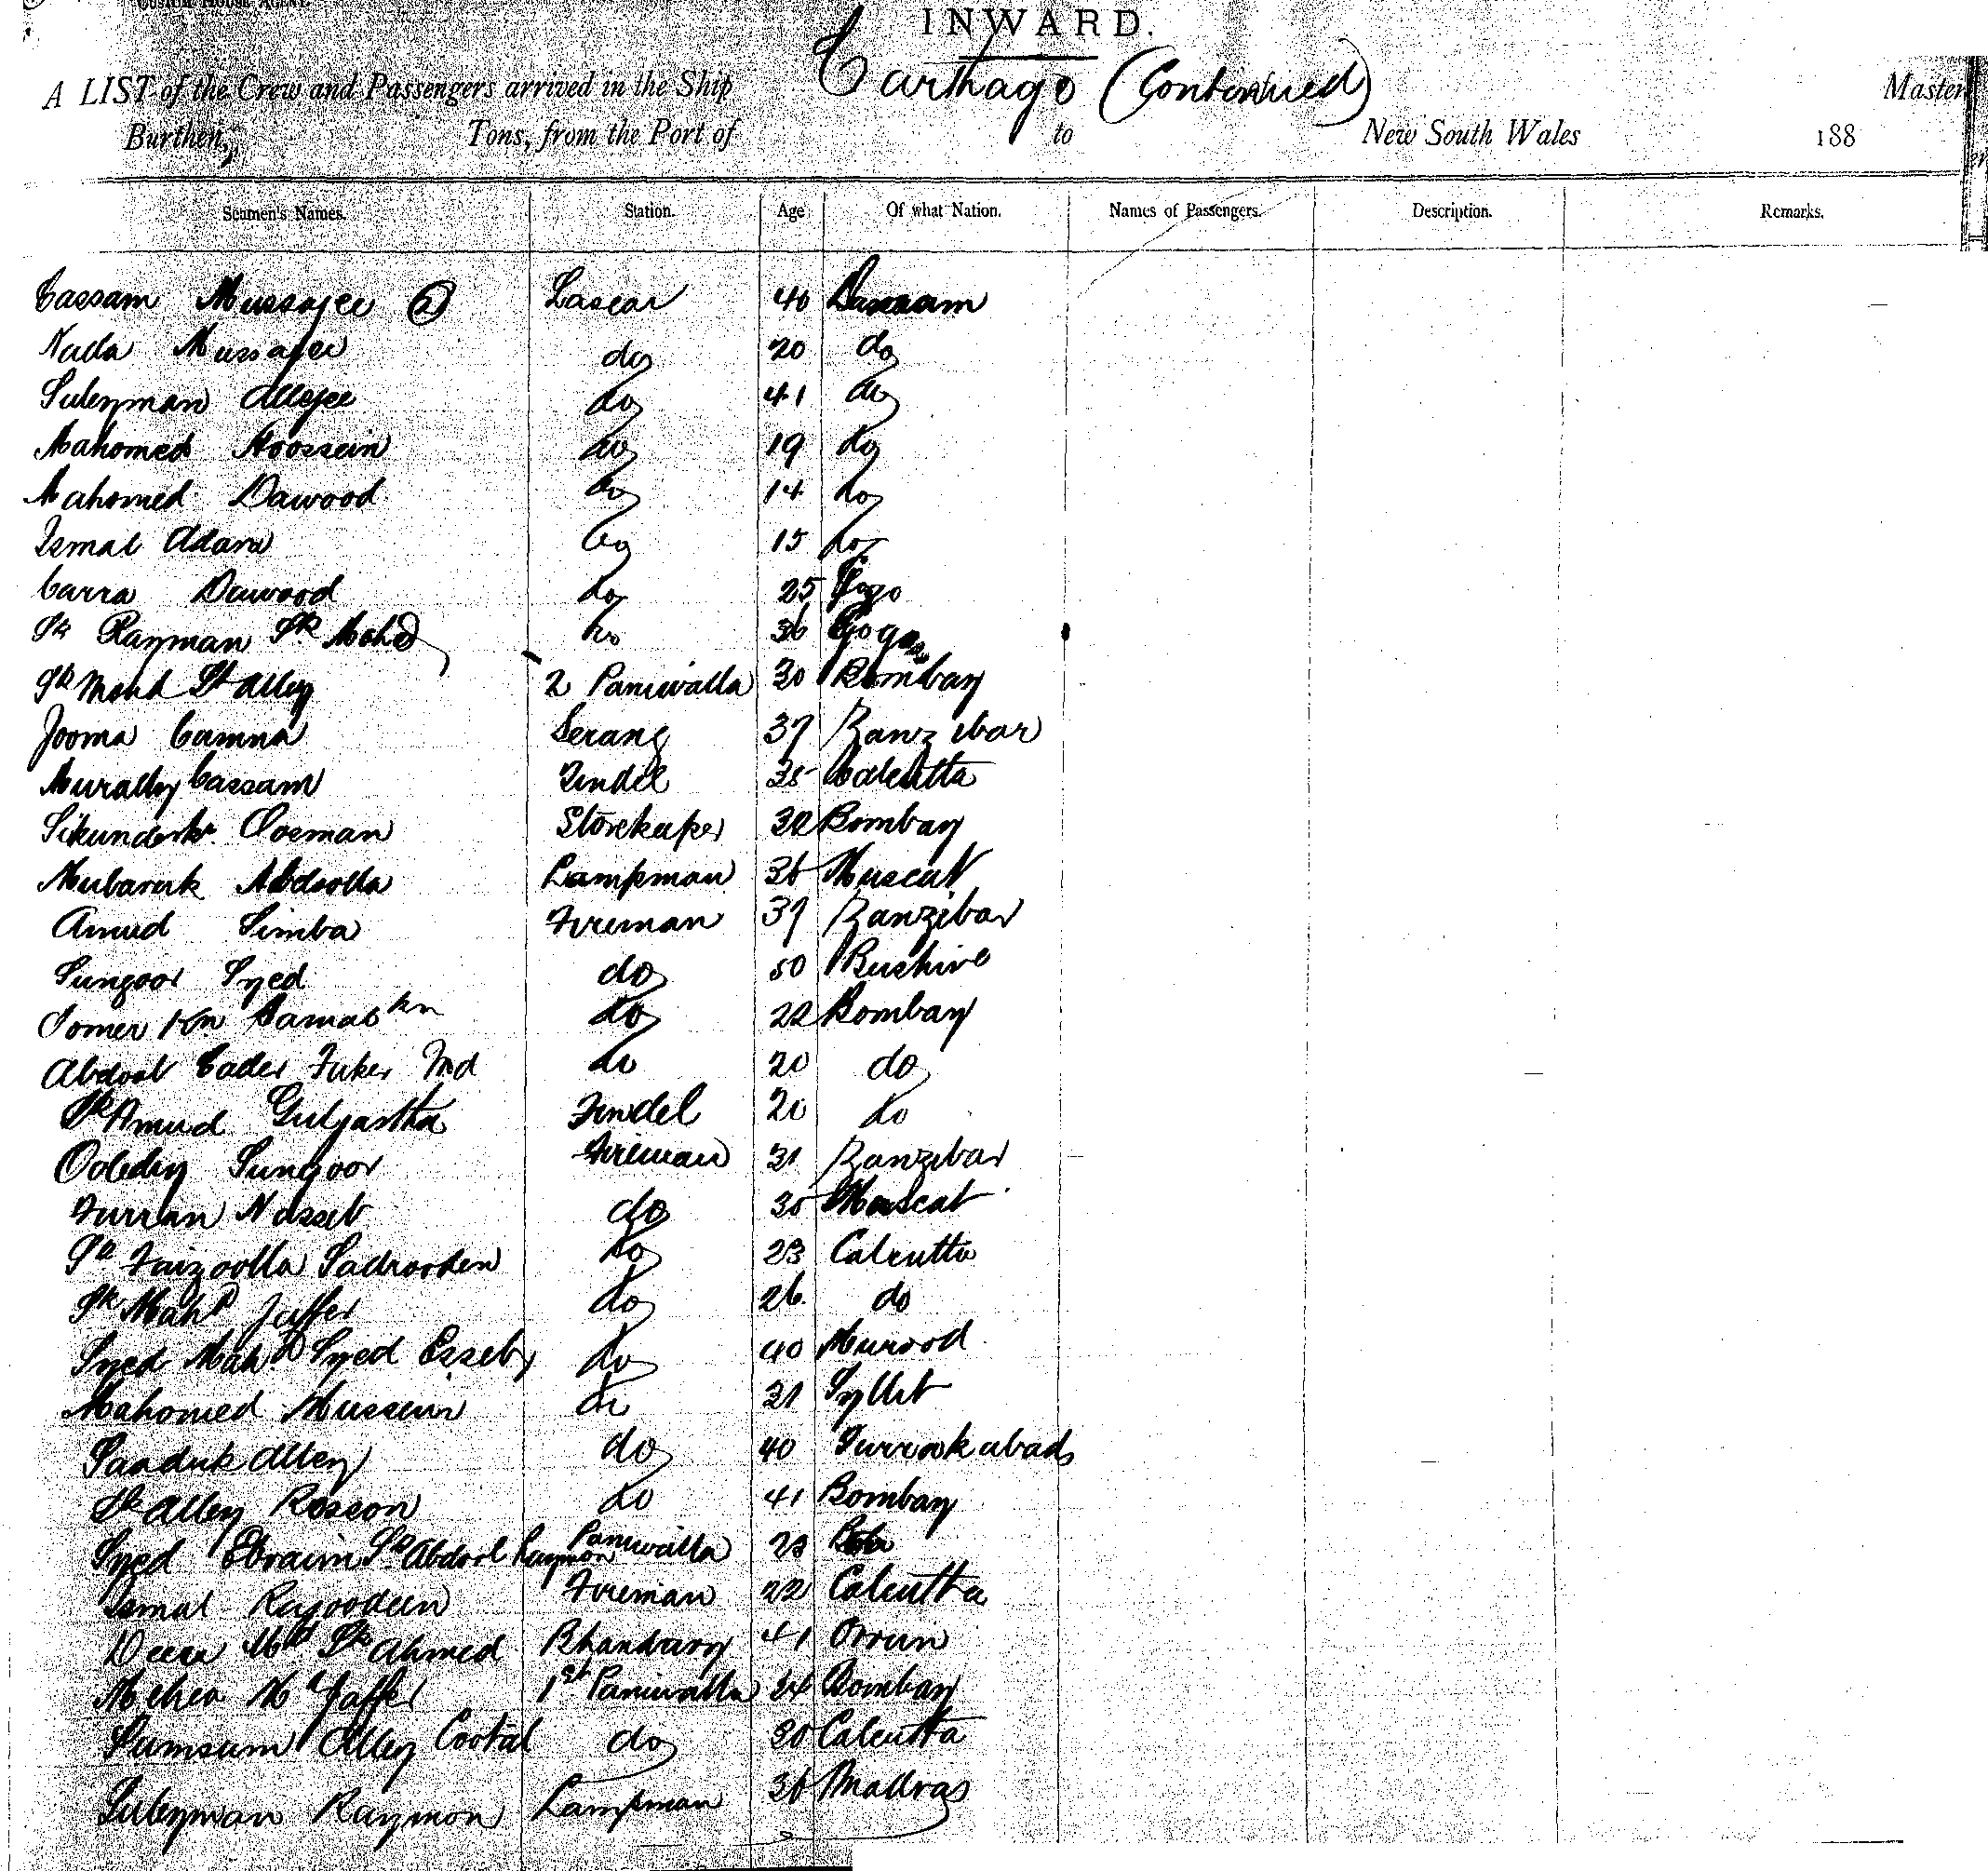 CUSTOM HOUSE AGENT.
INWARD.
A LIST of the Crew and Passengers arrived in the Ship Carthago (Continued) Master
Burthen, Tons, from the Port of to New South Wales 188
Seamen's Names. Station. Age Of what Nation. Names of Passengers. Description. Remarks.
Cassam Mussajee 2 Lascar 40
Nada Mussajee do 20 do
Suleyman Allejee do 41 do
Mahomed Hoossein do 19 do
Mahomed Dawood do 14 do
Ismal Adam do 15 do
Carra Dawood do 25 Gogo
Sk Rayman Sk Mohd do 36 Gogo
Sk Moh Sk Alley 2 Paniwalla 30 Bombay
Jooma Camna Serang 37 Zanzibar
Muralley Cassam Tindel 35 Calcutta
Sikunder Oosman Storekeeper 30 Bombay
Mubaruk Abdoolla Lampman 36 Muscat
Amud Simba Fireman 37 Zanzibar
Sungoor Syed do 50 Bushire
Oomer Kn Samat Kn do 22 Bombay
Abdool Cader Fuker Md do 20 do
Sk Amud Guljartha Tindel 20 do
Ooledy Sungoor Fireman 31 Zanzibar
Furran Nasseb do 35 Muscat
Sk Faizoolla Sadrooden do 23 Calcutta
Sk Mahd Jaffer do 26 do
Syed Mahd Syed Esseby do 40 Murood
Mahomed Mussein do 31 Syllet
Saaduk Alley do 40 Furrookabad
Sk Alley Rosson do 41 Bombay
Syed Ebraim Sk Abdool Raymon Paniwalla 23
Ismal Rajoodeen Fireman 22 Calcutta
Md Sk Ahmed Bhandary 41
Md Jaffer 1st Paniwalla 24 Bombay
Sumsum Alley Cootal do 30 Calcutta
Suleyman Raymon Lampman 36 Madras